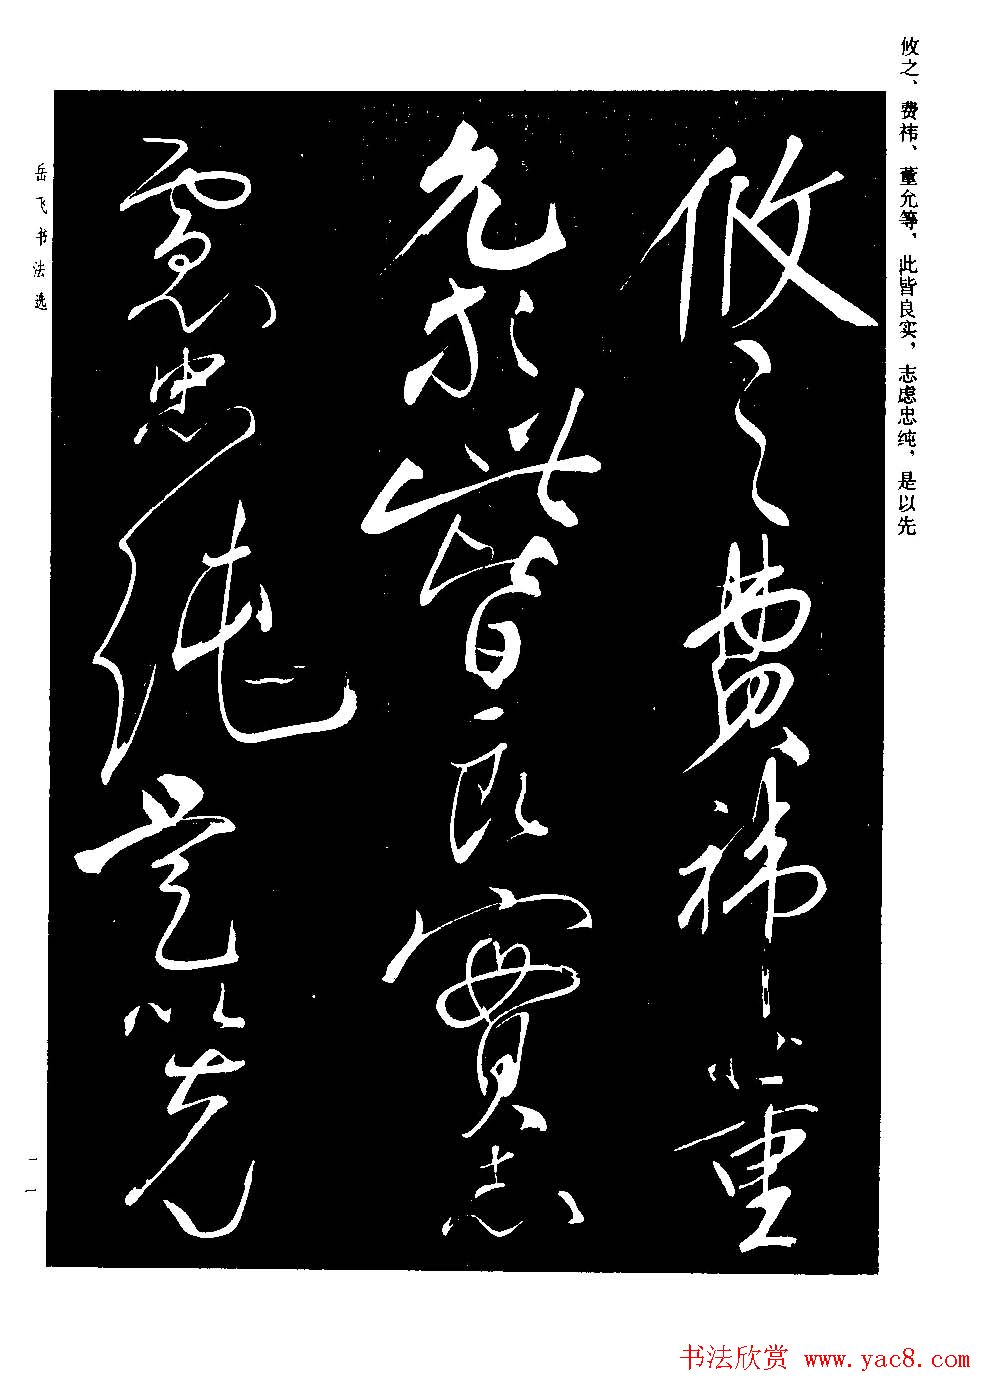 攸之、费祎、董允等，此皆良实，志虑忠纯，是以先
攸之费祎董
允等此皆良實志
慮忠純是以先
岳飞书法选
一一
书法欣赏 www.yac8.com